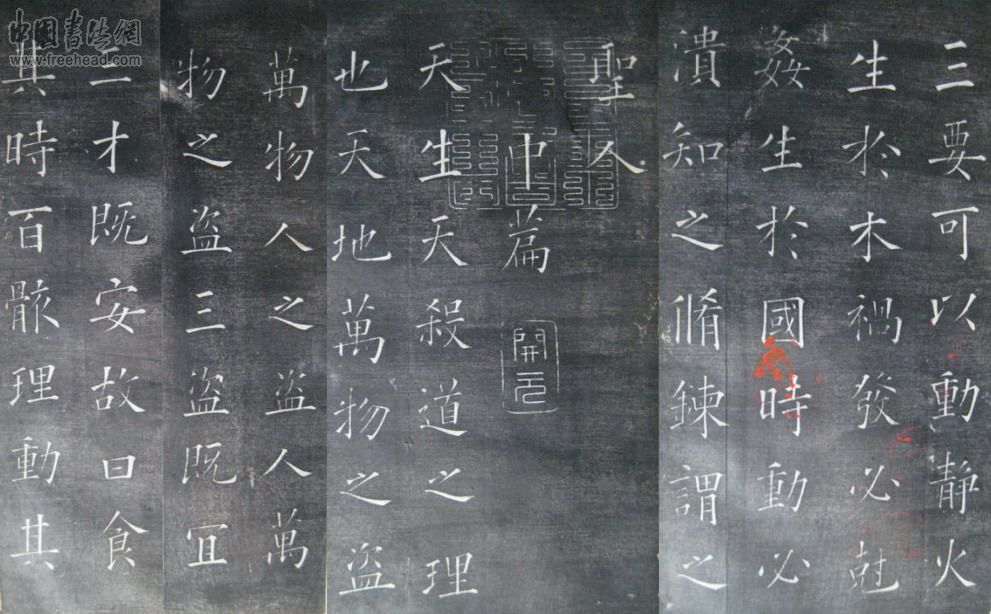 三要可以動靜火
生於木禍發必尅
姦生於國時動必
潰知之脩鍊謂之
聖人
中篇
開元
天生天殺道之理
也天地萬物之盗
萬物人之盗人萬
物之盗三盗既宜
三才既安故曰食
其時百骸理動其
中國書法網
www.freehead.com